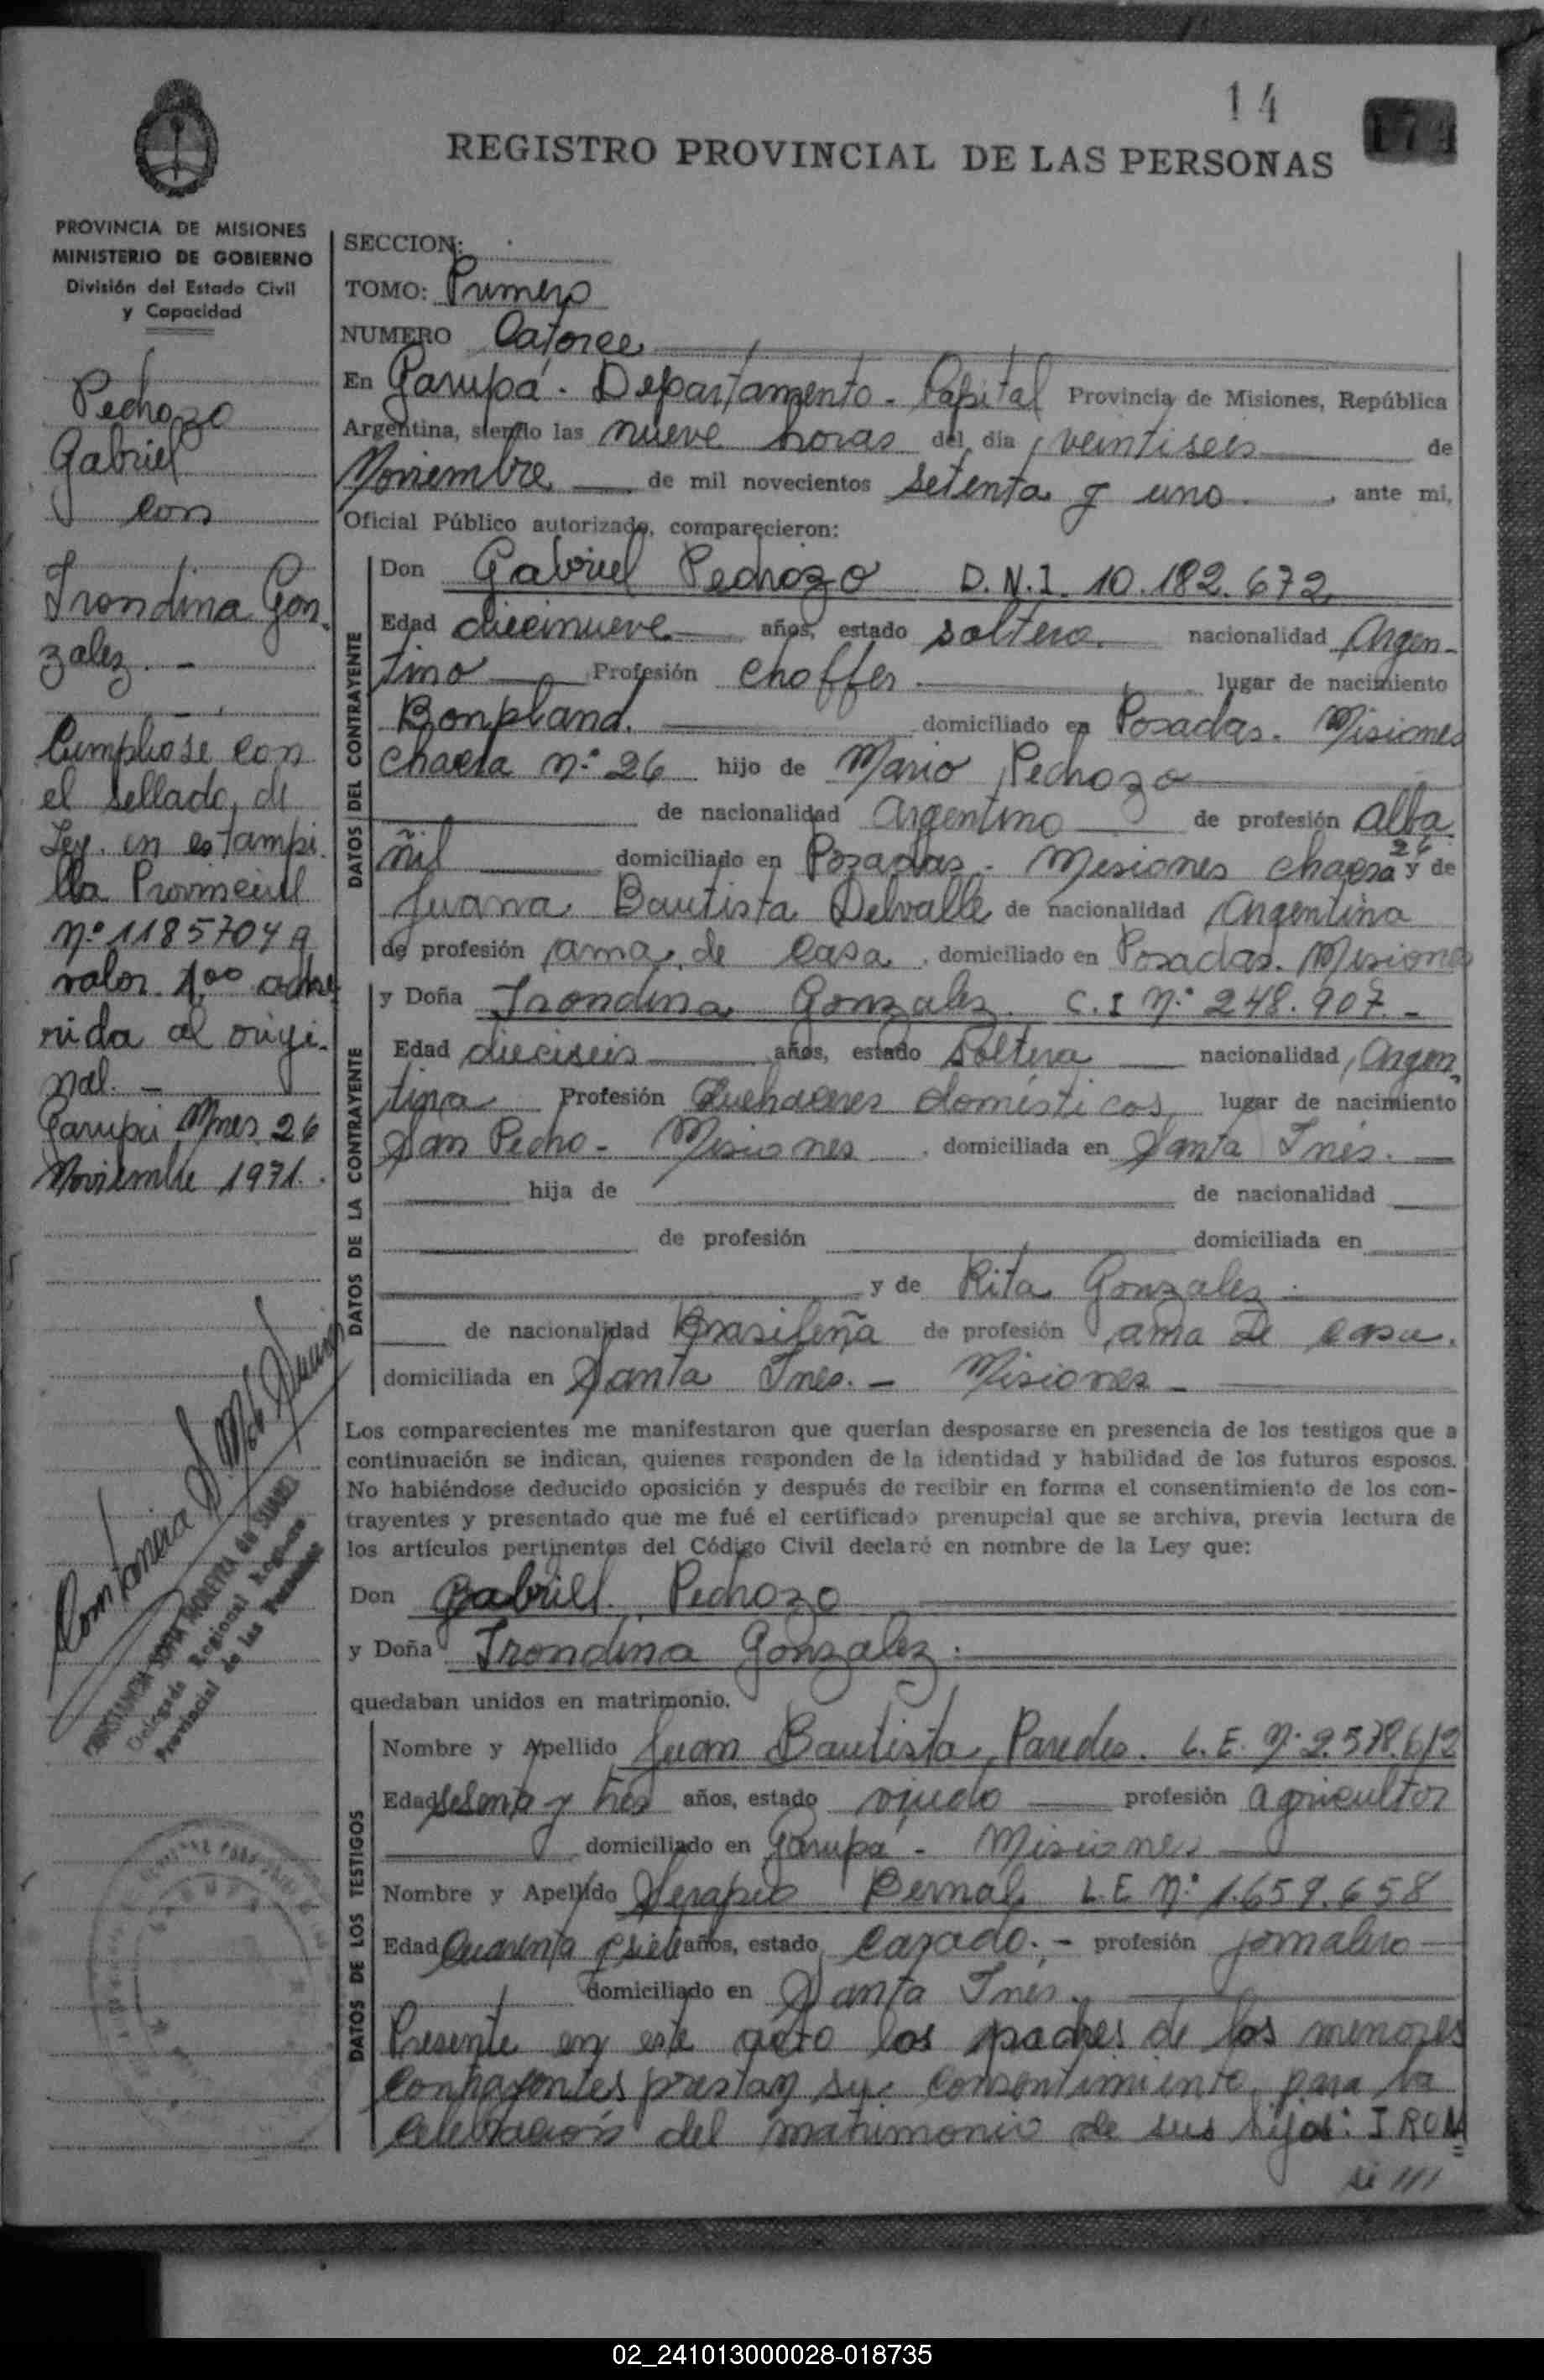 14
REGISTRO PROVINCIAL DE LAS PERSONAS
PROVINCIA DE MISIONES
MINISTERIO DE GOBIERNO
División del Estado Civil
y Capacidad
Pedrozo
Gabriel
con
Irondina Gon
zalez. -
Cumpliose con
el sellado de
Ley en estampi
lla Provincial
N° 1185704 a
valor 1,00 adhe
rida al origi-
nal. -
Garupá Mnes 26
Noviembre 1971.
SECCION:
TOMO: Primero
NUMERO Catorce
En Garupá - Departamento - Capital Provincia de Misiones, República
Argentina, siendo las nueve horas del día veintiseis de
Noviembre de mil novecientos setenta y uno. , ante mi,
Oficial Público autorizado, comparecieron:
DATOS DEL CONTRAYENTE
Don Gabriel Pedrozo D.N.I. 10.182.672
Edad diecinueve años, estado soltero. nacionalidad Argen-
tino Profesión choffer. lugar de nacimiento
Bonpland. domiciliado en Posadas. Misiones
chacra n° 26 hijo de Mario Pedrozo
de nacionalidad argentino de profesión alba
ñil domiciliado en Posadas - Misiones chacra 26 y de
Juana Bautista Delvalle de nacionalidad Argentina
de profesión ama de casa , domiciliado en Posadas. Misiones
DATOS DE LA CONTRAYENTE
y Doña Irondina Gonzalez. C.I N° 248.907. -
Edad dieciseis años, estado soltera nacionalidad Argen
tina Profesión Quehaceres domésticos lugar de nacimiento
San Pedro - Misiones , domiciliada en Santa Inés.
hija de de nacionalidad
de profesión domiciliada en
y de Rita Gonzalez
de nacionalidad Brasileña de profesión ama de casa.
domiciliada en Santa Ines. - Misiones -
Los comparecientes me manifestaron que querían desposarse en presencia de los testigos que a
continuación se indican, quienes responden de la identidad y habilidad de los futuros esposos.
No habiéndose deducido oposición y después de recibir en forma el consentimiento de los con-
trayentes y presentado que me fué el certificado prenupcial que se archiva, previa lectura de
los artículos pertinentes del Código Civil declaré en nombre de la Ley que:
Don Gabriel Pedrozo
y Doña Irondina Gonzalez.
quedaban unidos en matrimonio.
CONSTANCIA SOFIA MOREYRA de
Delegado Regional Registro
Provincial de las Personas
DATOS DE LOS TESTIGOS
Nombre y Apellido Juan Bautista Paredes. L.E. N° 2.578.612
Edad sesenta y tres años, estado viudo profesión agricultor
domiciliado en Garupá - Misiones
Nombre y Apellido Serapio Bernal L.E N° 1.659.658
Edad Cuarenta y siete años, estado Casado. - profesión jornalero
domiciliado en Santa Inés.
Presente en este acto los padres de los menores
contrayentes prestan su consentimiento para la
celebración del matrimonio de sus hijos: IRON
02_241013000028-018735